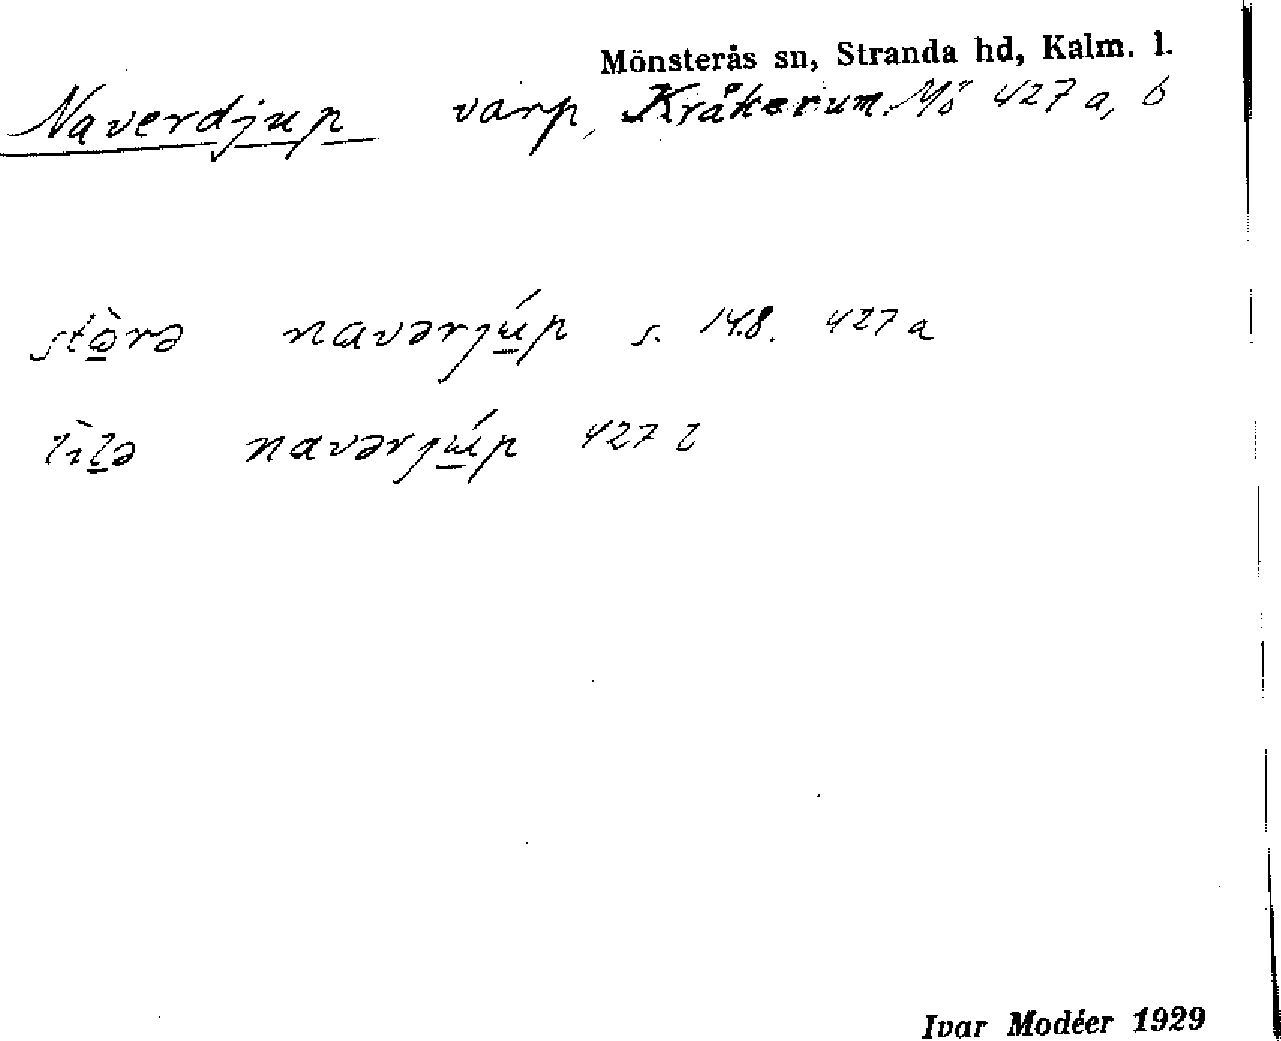 Mönsterås sn, Stranda hd, Kalm. l.
Naverdjup varp, Kråkerum. Mö 427 a, b
stò̱rə navərjú̱p s. 148. 427 a
lìḻə navərjú̱p 427 b
Ivar Modéer 1929